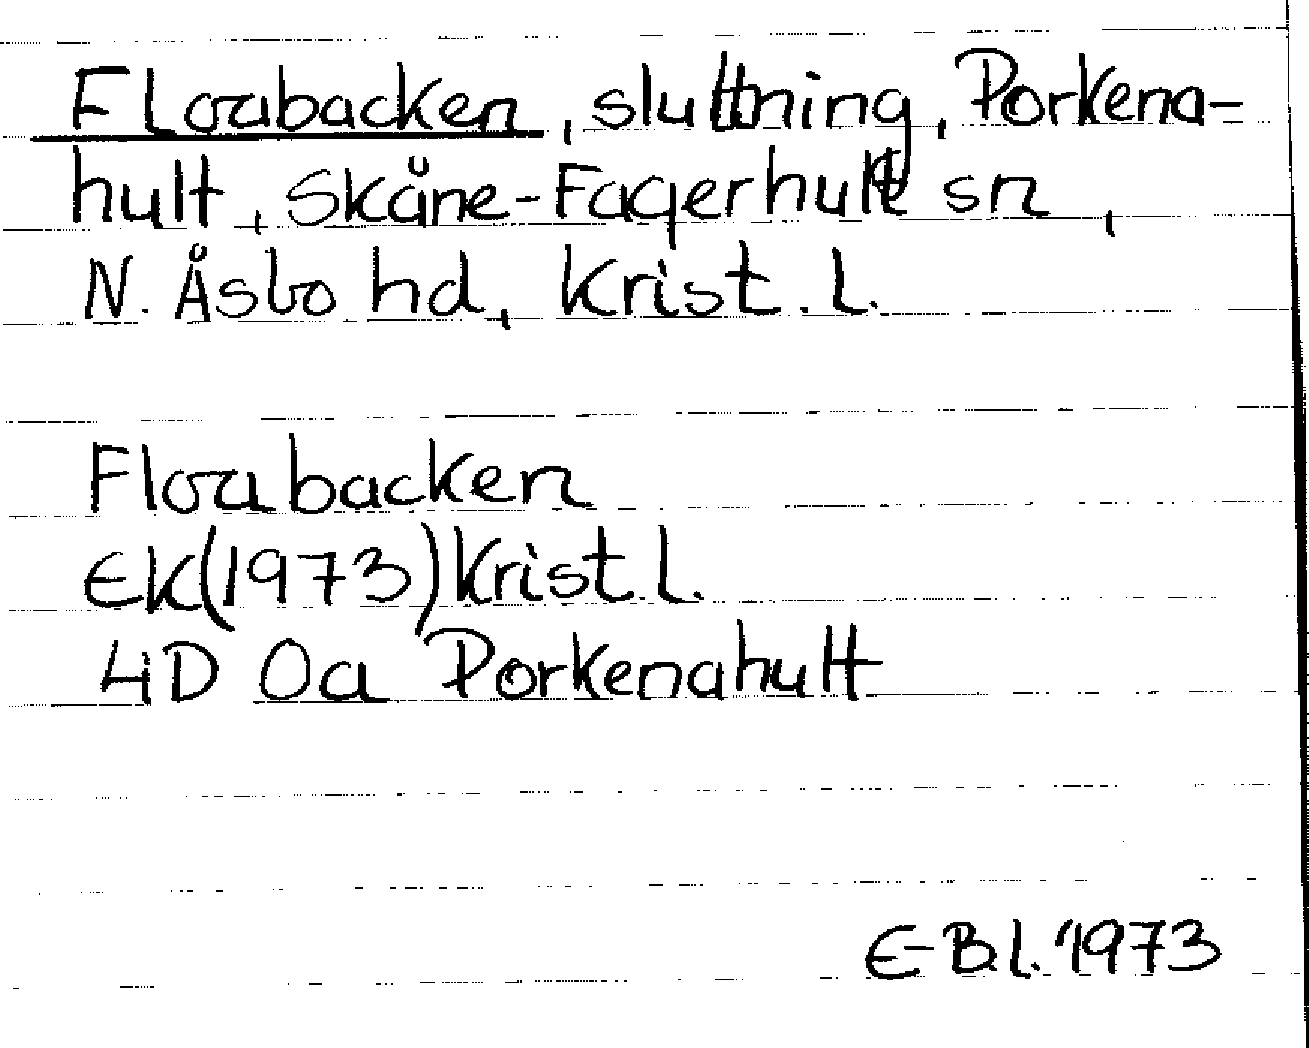 Floabacken, sluttning, Porkena-
hult, Skåne-Fagerhult sn,
N. Åsbo hd, Krist. l.
Floabacken
EK(1973) Krist. l.
4D 0a Porkenahult
E-B.l. 1973